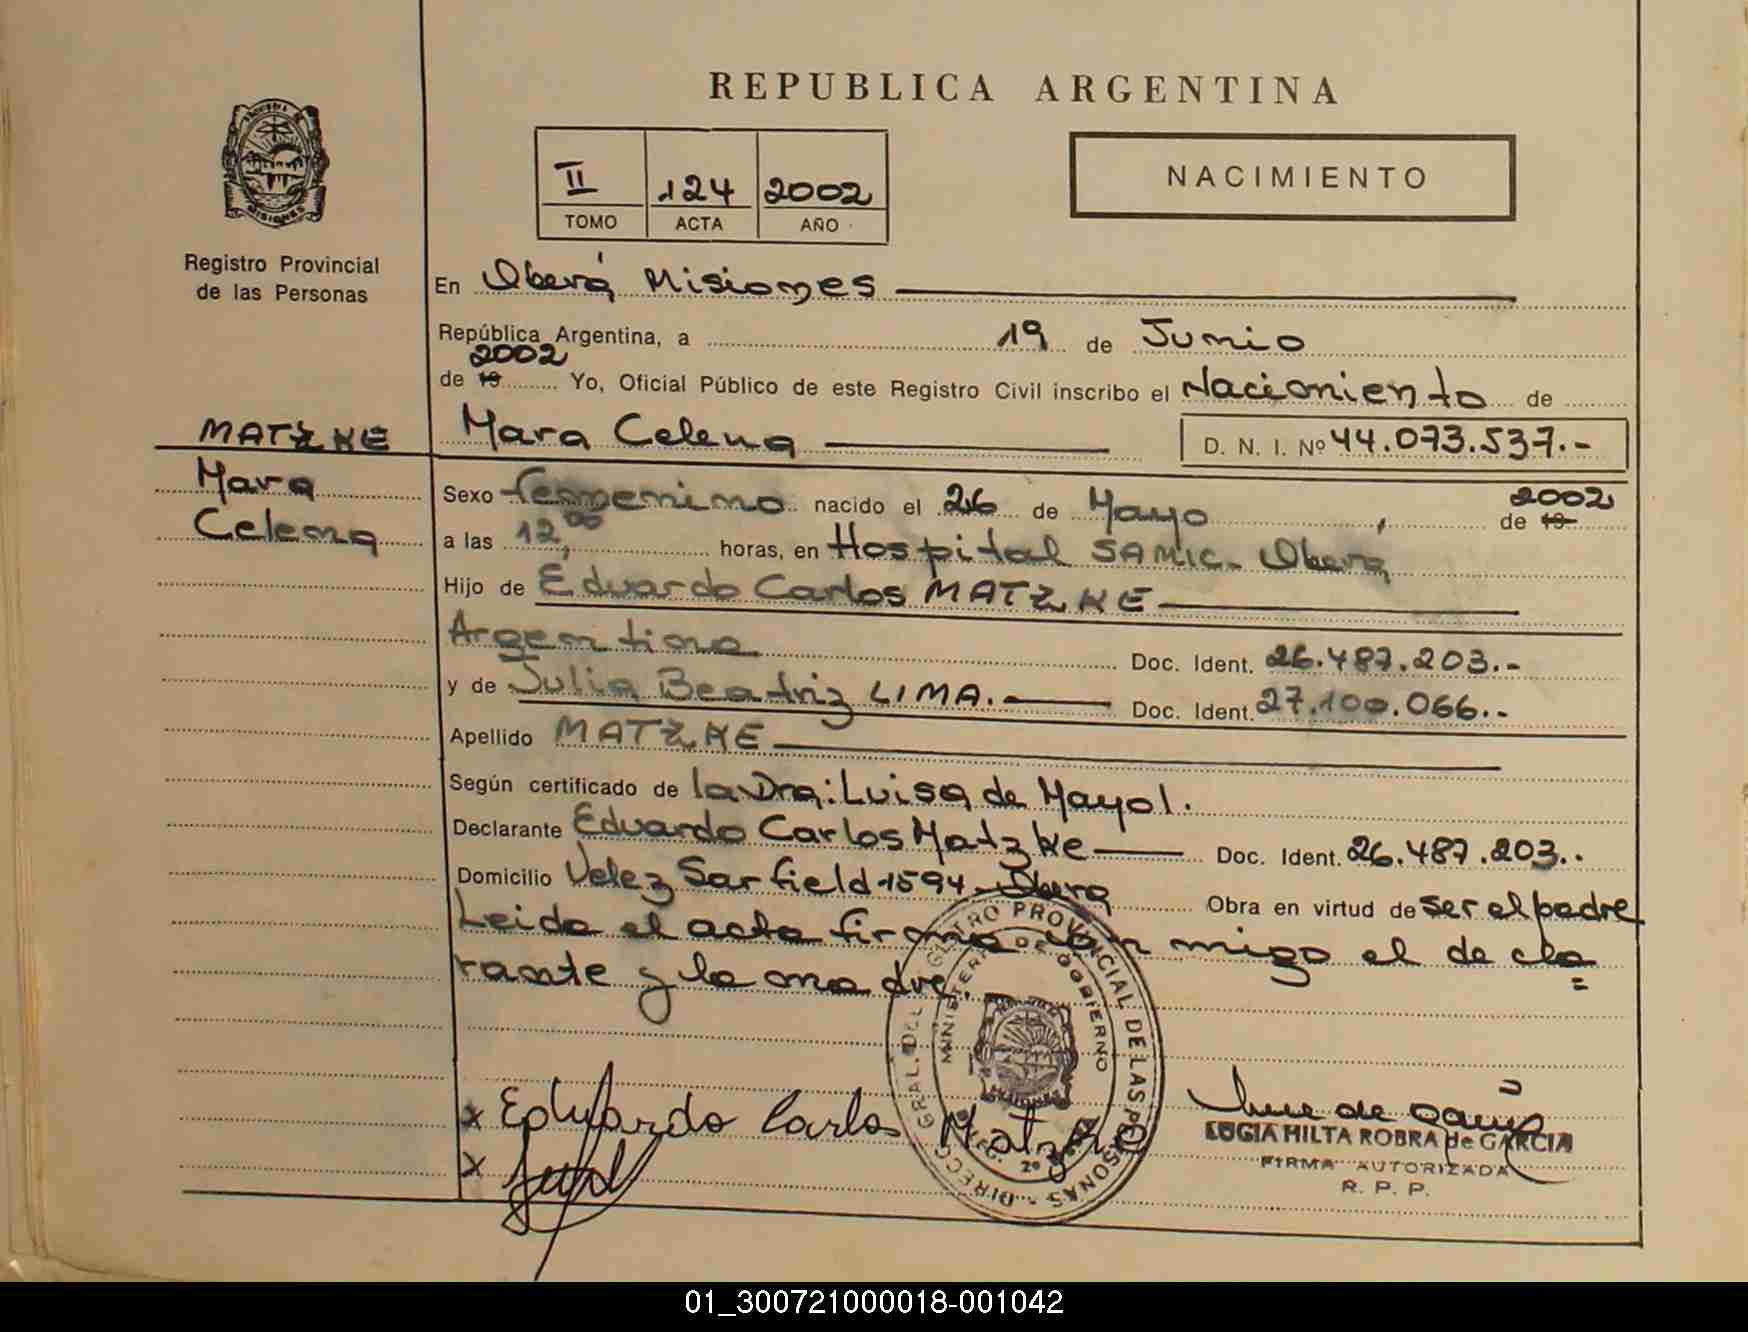 REPUBLICA ARGENTINA
II 124 2002
TOMO ACTA AÑO
NACIMIENTO
MISIONES
Registro Provincial
de las Personas
En Oberá Misiones
República Argentina, a 19 de Junio
2002
de 19 Yo, Oficial Público de este Registro Civil inscribo el Nacimiento de
MATZKE
Mara
Celena
Mara Celena D. N. I. Nº 44.073.537.-
Sexo femenino nacido el 26 de Mayo de 19 2002
a las 12,00 horas, en Hospital SAMIC- Oberá
Hijo de Eduardo Carlos MATZKE
Argentino Doc. Ident. 26.487.203.-
y de Julia Beatriz LIMA. Doc. Ident. 27.100.066.-
Apellido MATZKE
Según certificado de la Dra: Luisa de Mayol.
Declarante Eduardo Carlos Matzke Doc. Ident. 26.487.203..
Domicilio Velez Sarfield 1594 - Obera Obra en virtud de ser el padre
Leida el acta firma con migo el decla
rante y la madre.
DIRECC. GRAL. DEL REGISTRO PROVINCIAL DE LAS PERSONAS
MINISTERIO DE GOBIERNO
MISIONES
x Eduardo Carlos Matzke
x
LUGIA HILTA ROBRA de GARCIA
FIRMA AUTORIZADA
R. P. P.
01_300721000018-001042